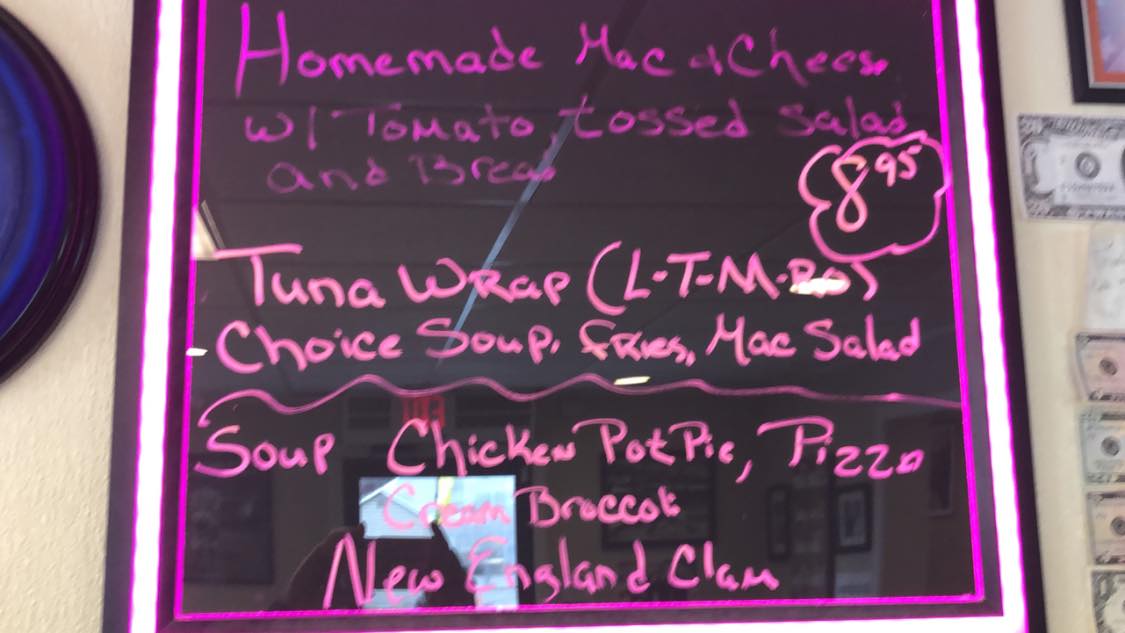 Homemade Mac & Cheese
w/ Tomato, tossed salad
and Bread
8 95
Tuna Wrap (L-T-M-RO)
Choice Soup, fries, Mac Salad
Soup Chicken Pot Pie, Pizza
Cream Broccoli
New England Clam